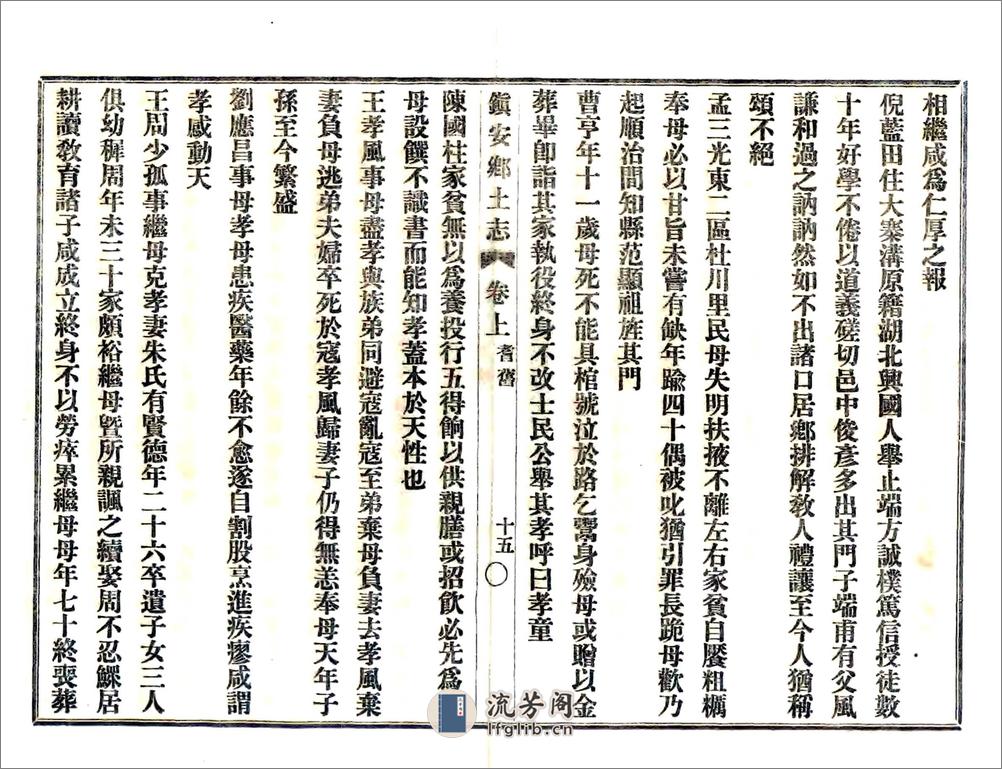 相繼咸爲仁厚之報
倪藍田住大寨溝原籍湖北興國人舉止端方誠樸篤信授徒數
十年好學不倦以道義磋切邑中俊彥多出其門子端甫有父風
謙和過之訥訥然如不出諸口居鄉排解教人禮讓至今人猶稱
頌不絕
孟三光東二區杜川里民母失明扶掖不離左右家貧自饜粗糲
奉母必以甘旨未嘗有缺年踰四十偶被叱猶引罪長跪母歡乃
起順治間知縣范顯祖旌其門
曹亨年十一歲母死不能具棺號泣於路乞鬻身殮母或贈以金
葬畢卽詣其家執役終身不改士民公舉其孝呼曰孝童
鎭安鄉土志 卷上 耆舊 十五 〇
陳國柱家貧無以爲養投行五得餉以供親膳或招飲必先爲
母設饌不識書而能知孝蓋本於天性也
王孝風事母盡孝與族弟同避寇亂寇至弟棄母負妻去孝風棄
妻負母逃弟夫婦卒死於寇孝風歸妻子仍得無恙奉母天年子
孫至今繁盛
劉應昌事母孝母患疾醫藥年餘不愈遂自割股烹進疾瘳咸謂
孝感動天
王周少孤事繼母克孝妻朱氏有賢德年二十六卒遺子女三人
俱幼穉周年未三十家頗裕繼母曁所親諷之續娶周不忍鰥居
耕讀敎育諸子咸成立終身不以勞瘁累繼母母年七十終喪葬
流芳阁
lfglib.cn